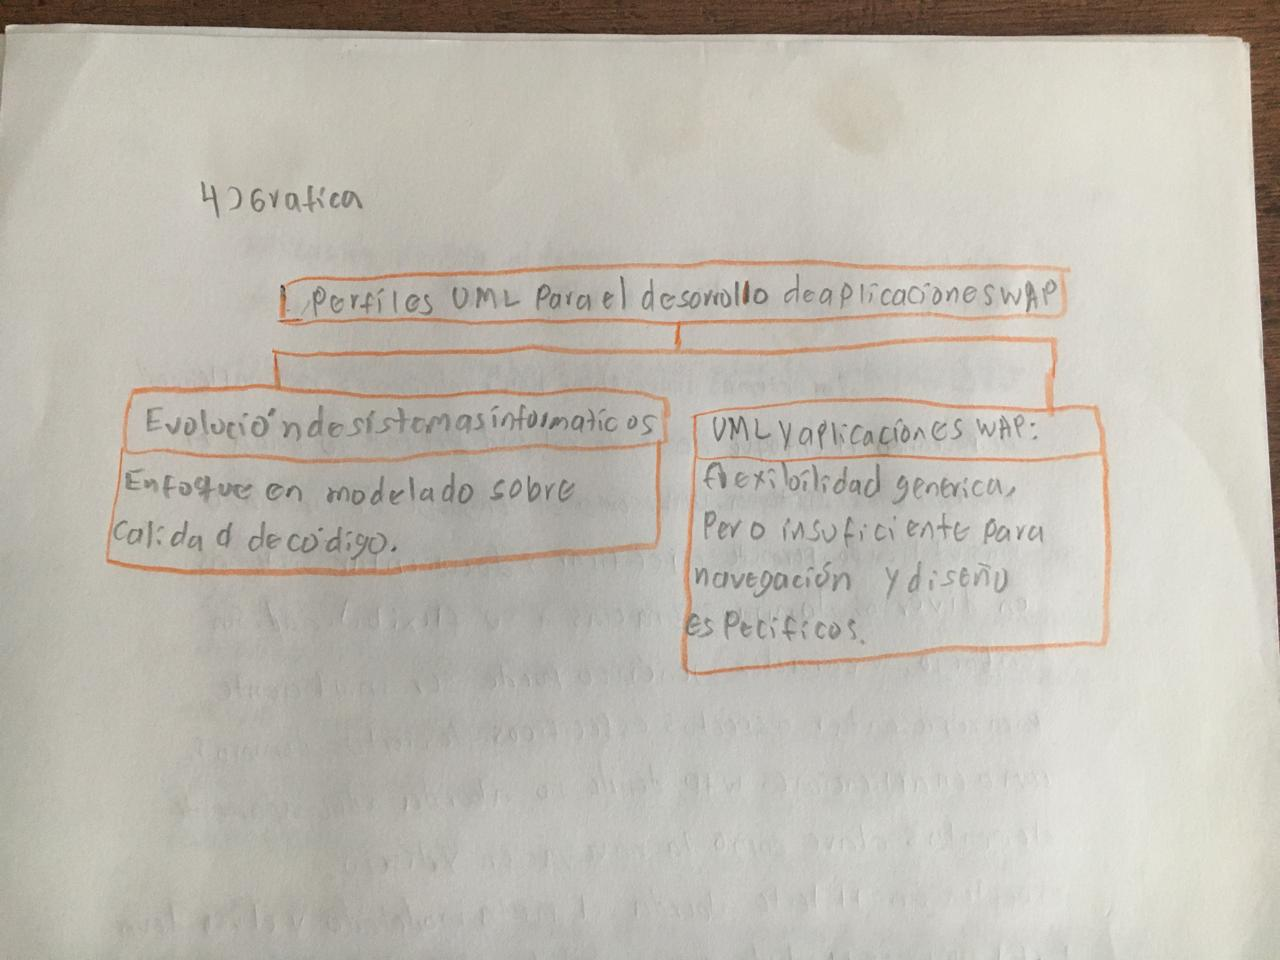 4) Grafica
1. Perfiles UML Para el desorrollo de aplicaciones WAP
Evolución de sistemas informaticos
Enfoque en modelado sobre
calidad de código.
UML y aplicaciones WAP:
flexibilidad generica,
Pero insuficiente para
navegación y diseño
esPecificos.